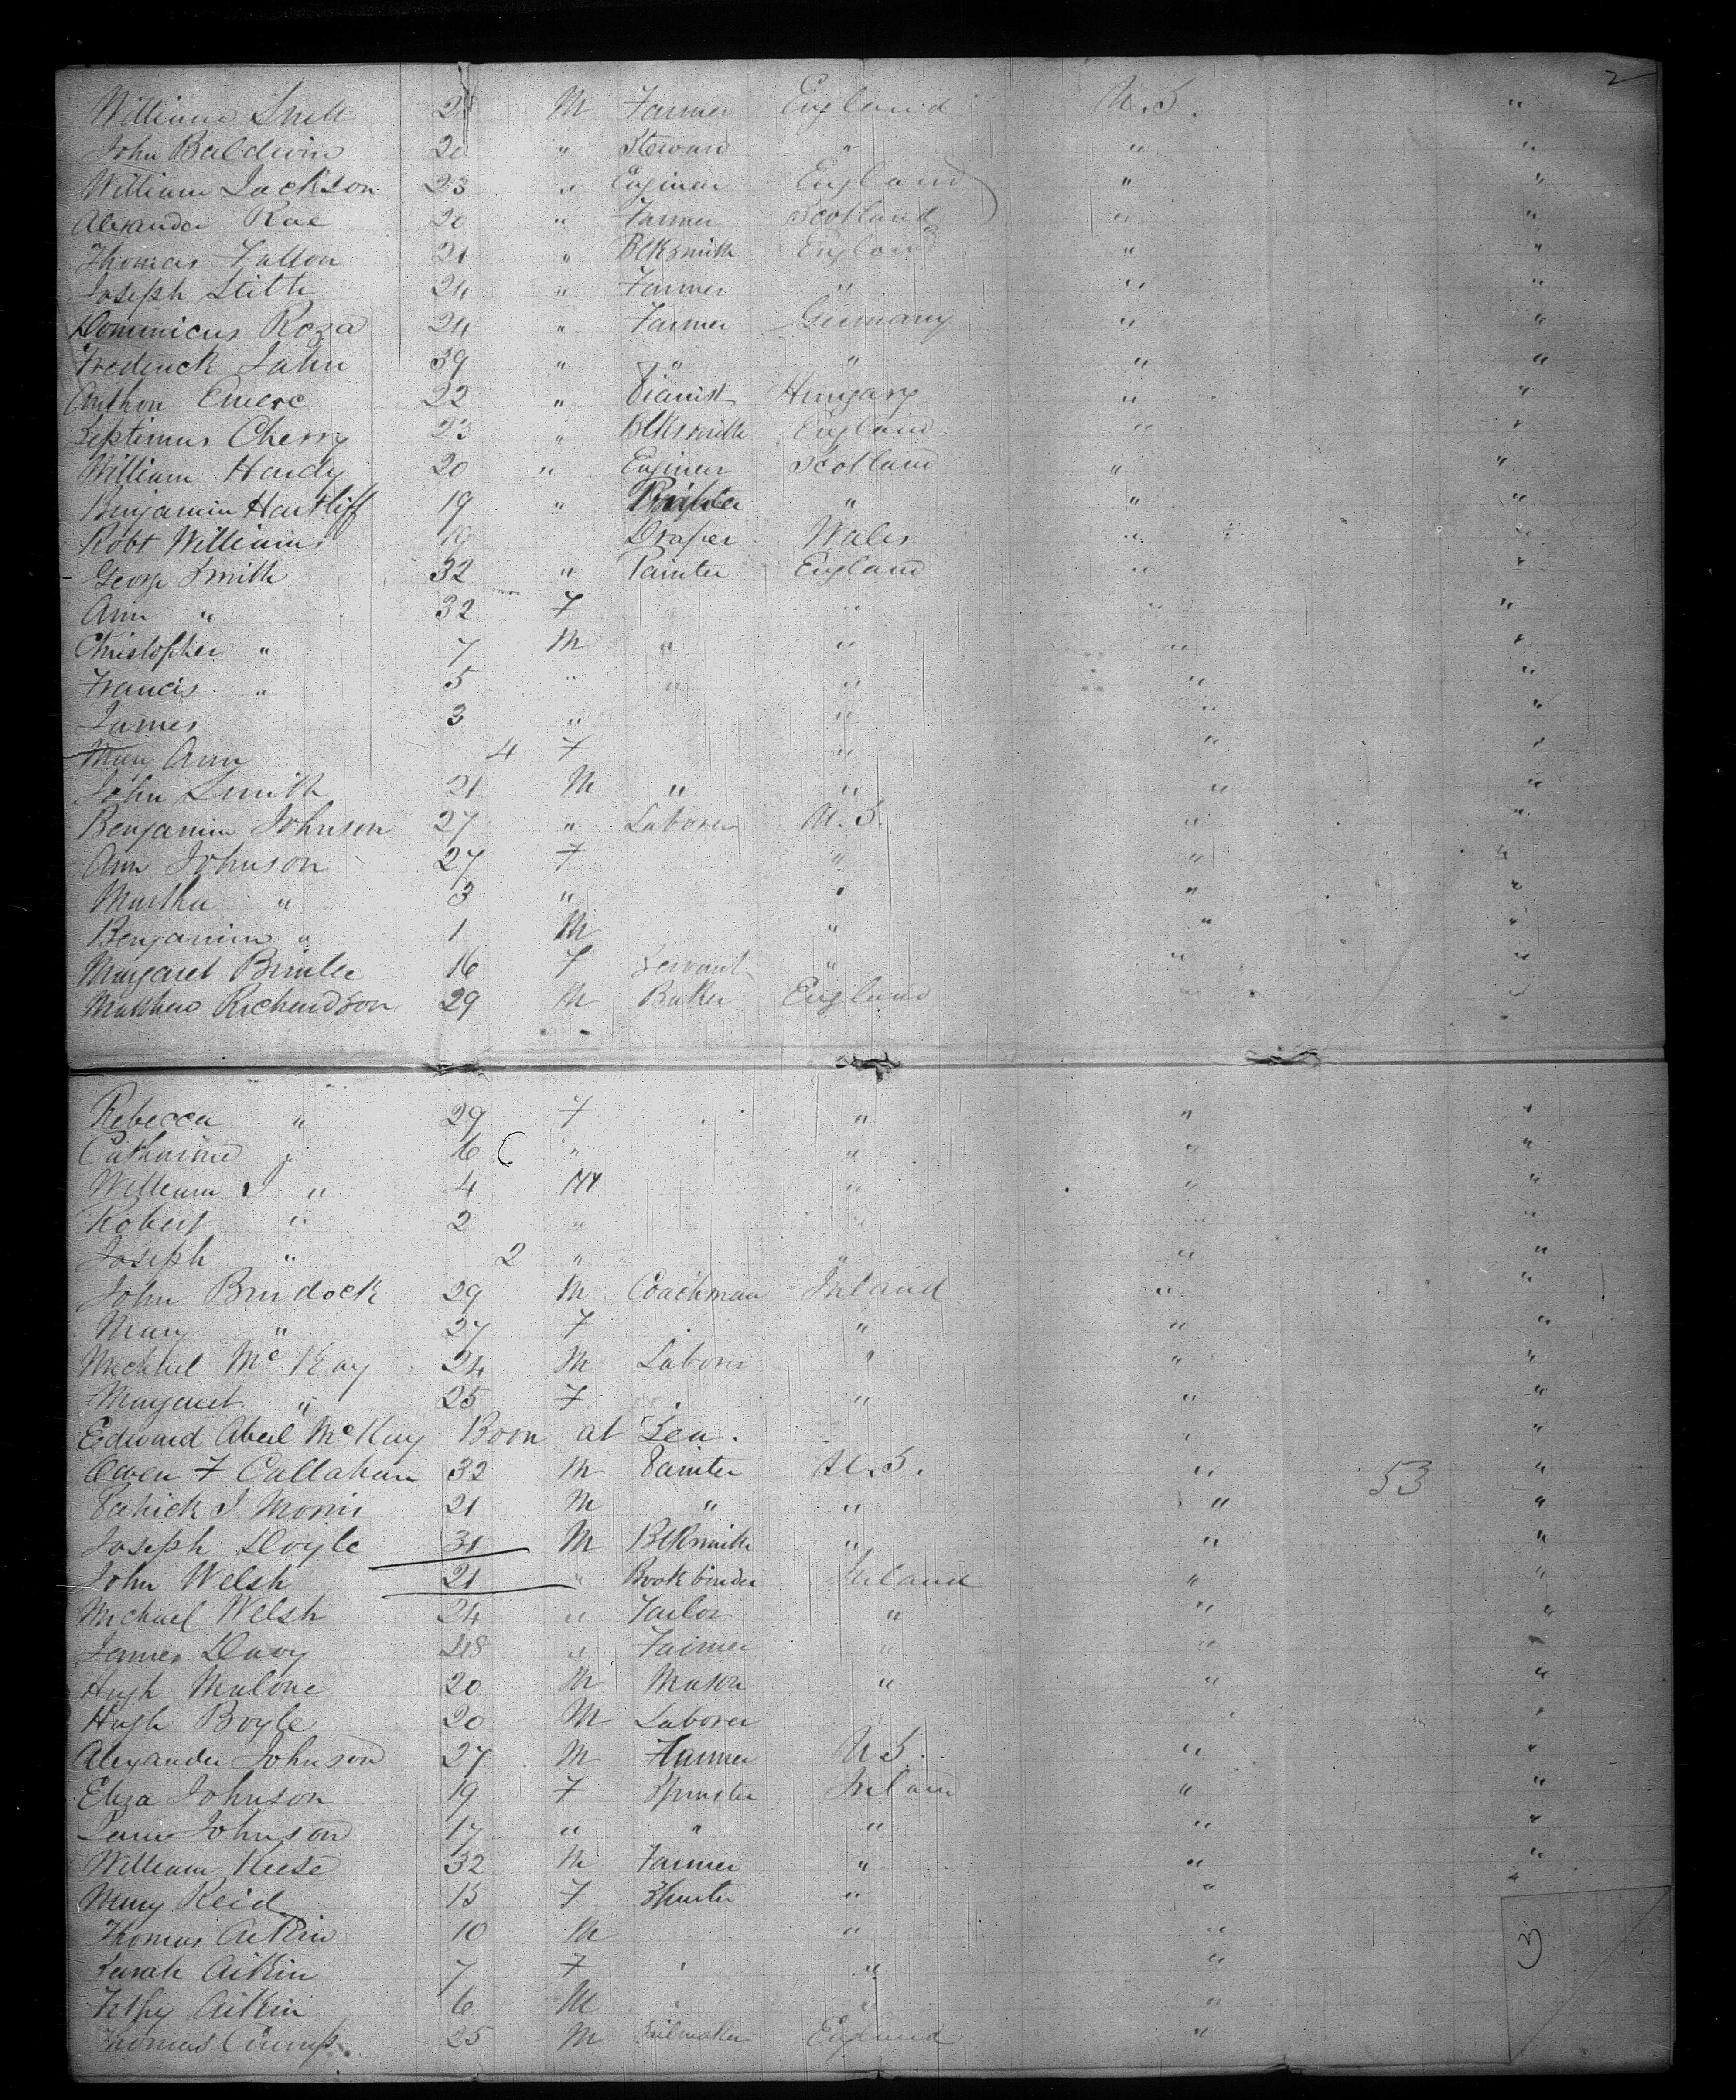 2
William Snell 28 M Farmer England U.S. "
John Baldwin 20 " Steward " " "
William Jackson 23 " Enginear England " "
Alexander Rae 20 " Farmer Scotland " "
Thomas Fallon 21 " Blksmith England " "
Joseph Stitt 24 " Farmer " " "
Dominicus Roza 24 " Farmer Germany " "
Frederick Jahn 39 " " " " "
Anthon 22 " Pianist Hungary " "
Septimus Cherry 23 " Blksmith England " "
William Hardy 20 " Enginear Scotland " "
Benjamin Hartliff 19 " " " "
Robt Williams 19 Draper Wales " "
George Smith 32 " Painter England " "
Ann " 32 F " " "
Christopher " 7 M " " " "
Francis " 5 " " " " "
James 3 " " " "
Mary Ann 4 F " " "
John Smith 21 M " " " "
Benjamin Johnson 27 " Laborer U.S. " "
Ann Johnson 27 F " " "
Martha " 3 " " " "
Benjamin " 1 M " " "
Margaret 16 F Servant " " "
Matthew Richardson 29 M Baker England " "
Rebecca " 29 F " " "
Catharine " 6 " " " "
William J " 4 M " " "
Robert " 2 " " " "
Joseph " 2 " " " "
John Burdock 29 M Coachman Ireland " "
Mary " 27 F " " "
Michael McKay 24 M Laborer " " "
Margaret " 25 F " " "
Edward Abeil McKay Born at Sea. " "
Owen F Callahan 32 M Painter U.S. " 53 "
Patrick J Morris 21 M " " " "
Joseph Doyle 31 M Blksmith " " "
John Welsh 21 " Bookbinder Ireland " "
Michael Welsh 24 " Tailor " " "
James Davy 48 " Farmer " " "
Hugh Malone 20 M Mason " " "
Hugh Boyle 20 M Laborer " "
Alexander Johnson 27 M Farmer U.S. " "
Eliza Johnson 19 F Spinster Ireland " "
Johnson 17 " " " " "
William Reese 32 M Farmer " " "
Mary Reid 13 F Spinster " " "
Thomas Aitkin 10 M " "
Sarah Aitkin 7 F " "
Aitkin 6 M " "
3
Thomas Crump 25 M Sailmaker England "